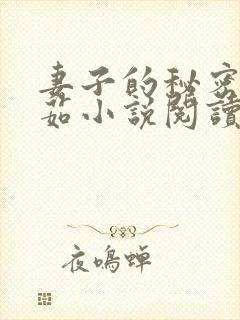 妻子的秘密
茹小說閱讀
夜鳴蝉